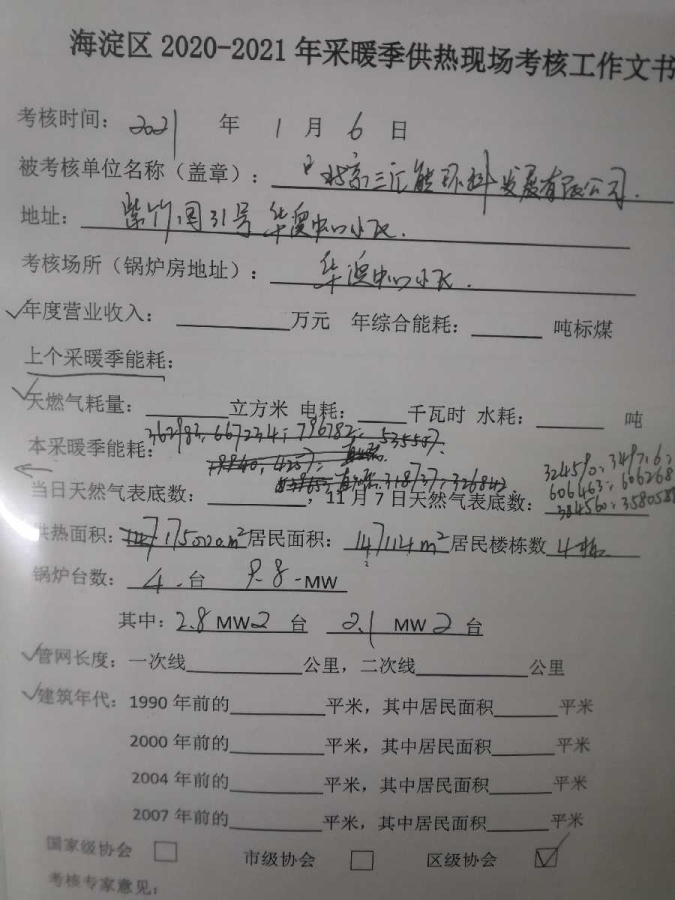 海淀区 2020-2021 年采暖季供热现场考核工作文书
考核时间： 2021 年 1 月 6 日
被考核单位名称（盖章）： 北京三汇能环科发展有限公司.
地址： 紫竹园31号华澳中心小区.
考核场所（锅炉房地址）： 华澳中心小区.
年度营业收入： 万元 年综合能耗： 吨标煤
上个采暖季能耗：
天燃气耗量： 立方米 电耗： 千瓦时 水耗： 吨
362983; 667234; 796782; 535587.
本采暖季能耗：
318737; 326842
324590; 349761;
606463; 606268
384560; 358058
当日天然气表底数： ，11 月 7 日天然气表底数：
供热面积： 175000m² 居民面积： 147114m² 居民楼栋数 4栋
锅炉台数： 4 台 9.8 MW
其中：2.8 MW 2 台 2.1 MW 2 台
管网长度：一次线 公里，二次线 公里
建筑年代：1990 年前的 平米，其中居民面积 平米
2000 年前的 平米，其中居民面积 平米
2004 年前的 平米，其中居民面积 平米
2007 年前的 平米，其中居民面积 平米
国家级协会 □ 市级协会 □ 区级协会 ☑
考核专家意见：